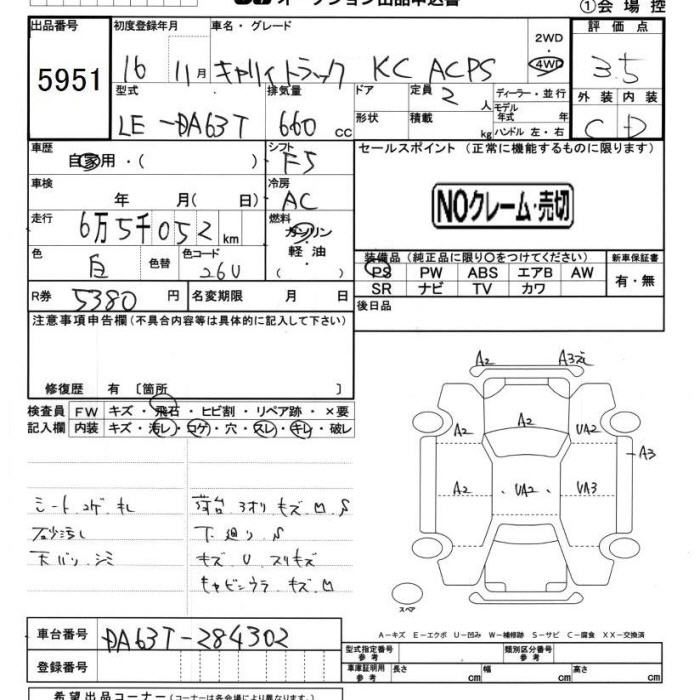 ①会場控
出品番号 初度登録年月 車名・グレード 2WD 4WD 評価点
5951 16 11月 キャリイトラック KC ACPS 3.5
型式 排気量 ドア 定員 2 人 ディーラー・並行 外装 内装
LE-DA63T 660 cc 形状 積載 kg モデル年式 年 ハンドル 左・右 C D
車歴 自家用・( ) シフト F5 セールスポイント(正常に機能するものに限ります)
車検 年 月(日) 冷房 AC
NOクレーム・売切
走行 6万5千052km 燃料 ガソリン 軽油
色 白 色替 色コード 26U ( )
装備品(純正品に限り○をつけてください) 新車保証書
PS PW ABS エアB AW 有・無
SR ナビ TV カワ
R券 5380円 名変期限 月 日 後日品
注意事項申告欄(不具合内容等は具体的に記入して下さい)
修復歴 有〔箇所 〕
検査員 FW キズ・飛石・ヒビ割・リペア跡・×要
記入欄 内装 キズ・汚レ・コゲ・穴・スレ・キレ・破レ
シートコゲ キレ 荷台 3オリ キズ 凹 S
砂汚し 下廻り S
天バリ シミ キズ U スリキズ
キャビンウラ キズ 凹
A2
A2 UA2
A3
A2 UA2 UA3
スペア
A-キズ E-エクボ U-凹み W-補修跡 S-サビ C-腐食 XX-交換済
車台番号 DA63T-284302
登録番号
型式指定番号 参考 類別区分番号 参考
車庫証明用 参考 長さ cm 幅 cm 高さ cm
希望出品コーナー(コーナーは各会場により異なります)